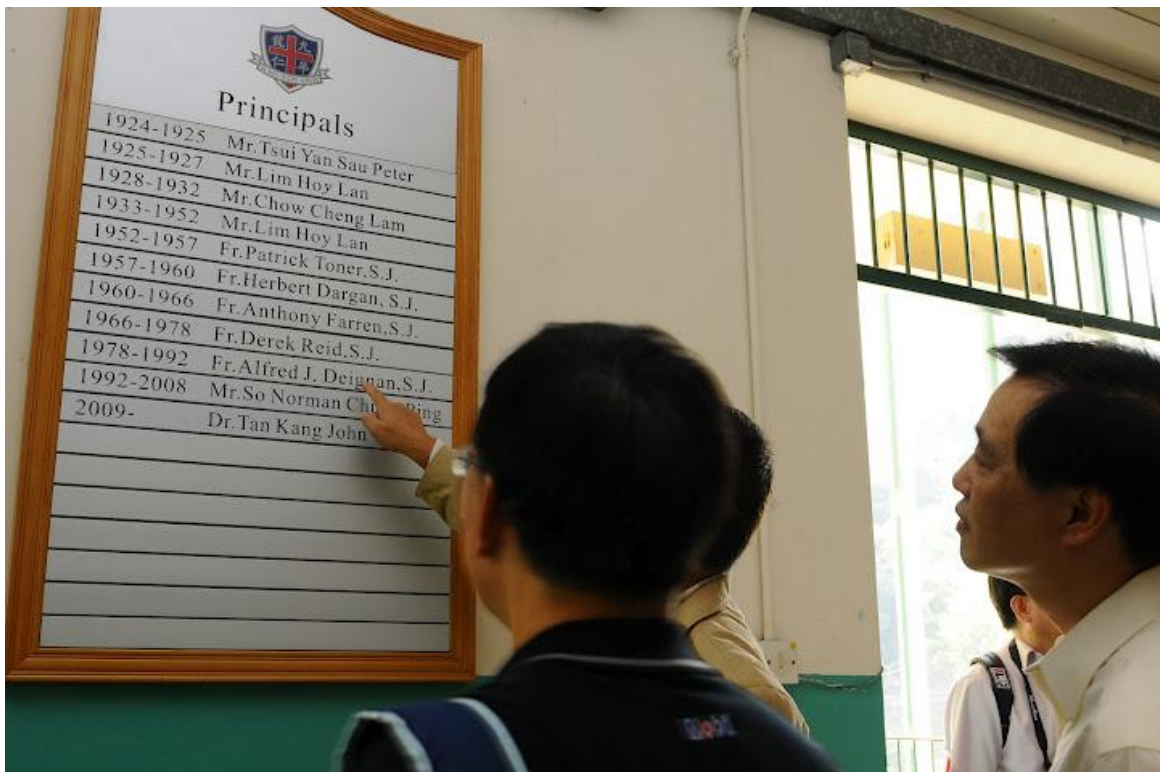 Principals
1924-1925 Mr.Tsui Yan Sau Peter
1925-1927 Mr.Lim Hoy Lan
1928-1932 Mr.Chow Cheng Lam
1933-1952 Mr.Lim Hoy Lan
1952-1957 Fr.Patrick Toner,S.J.
1957-1960 Fr.Herbert Dargan, S.J.
1960-1966 Fr.Anthony Farren,S.J.
1966-1978 Fr.Derek Reid,S.J.
1978-1992 Fr.Alfred J. Deignan,S.J.
1992-2008 Mr.So Norman
2009- Dr.Tan Kang John
Mobil